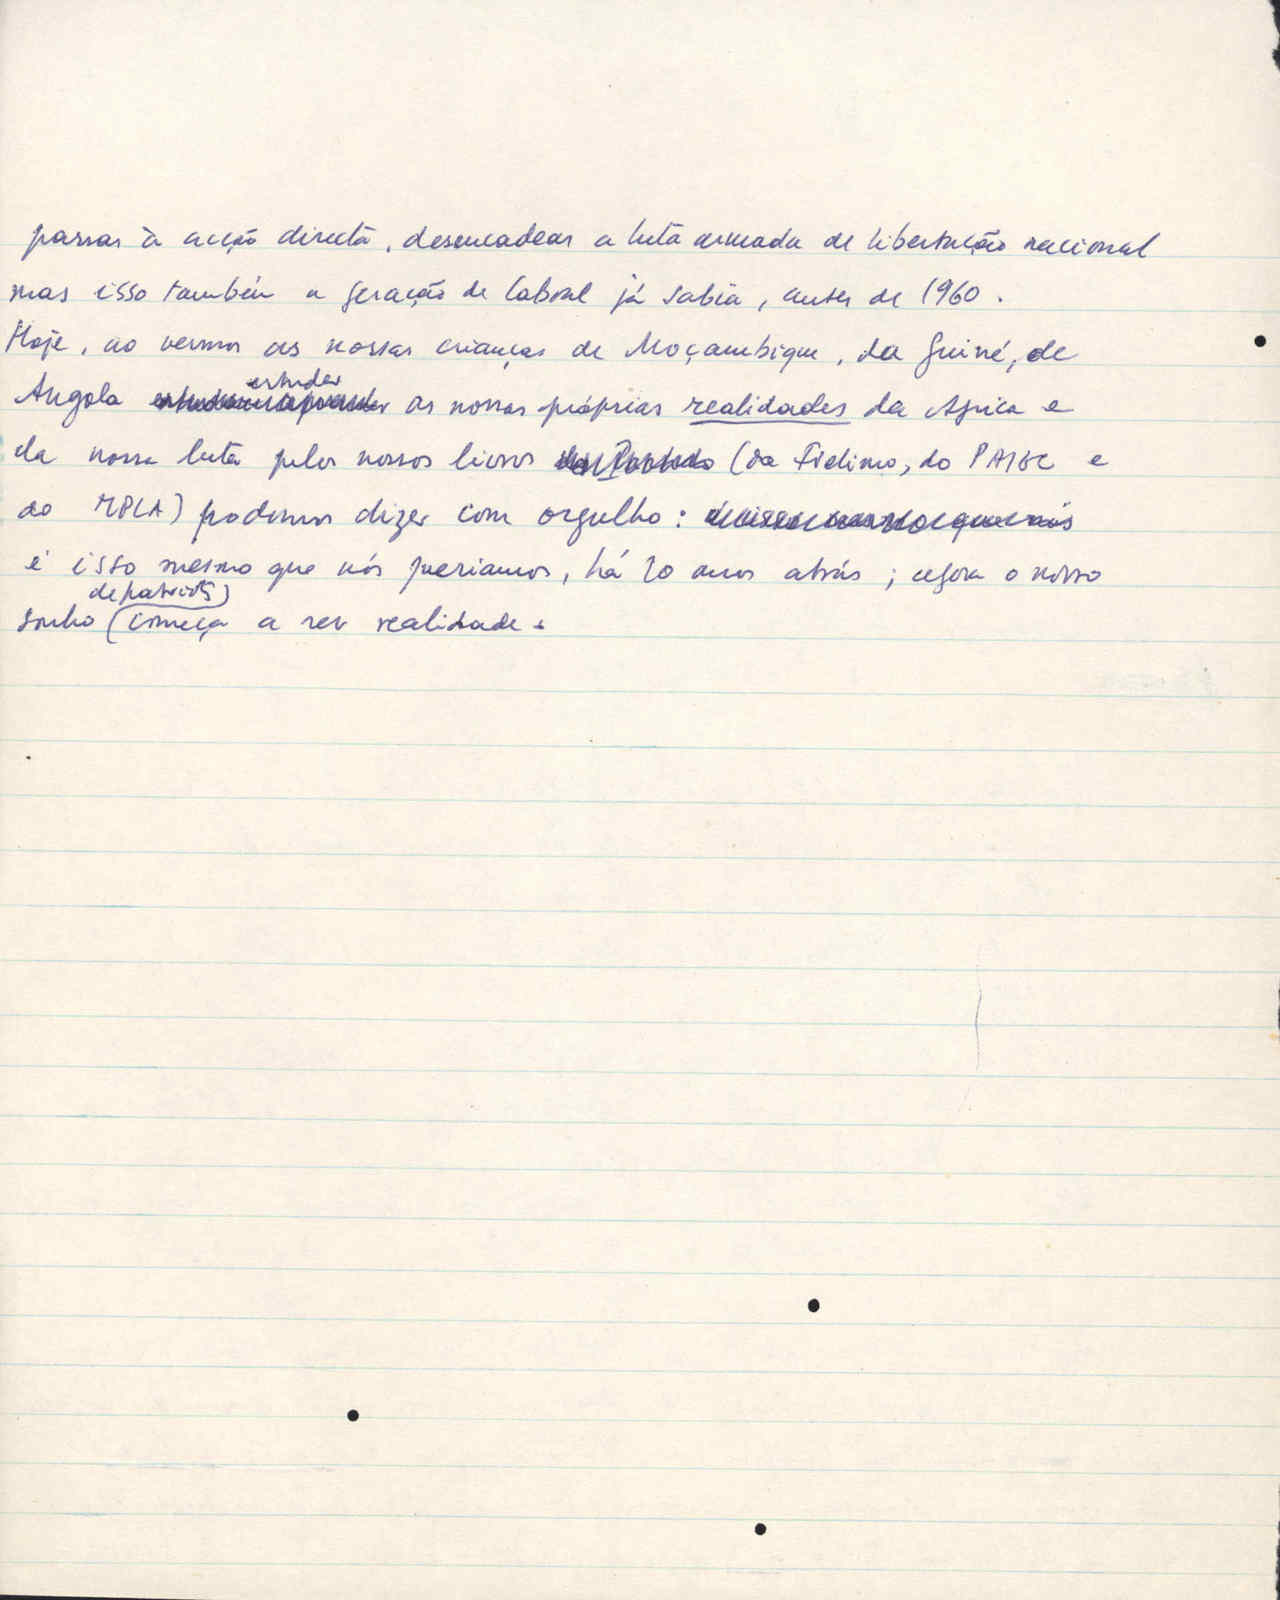 passar à acção directa, desencadear a luta armada de libertação nacional
mas isso também a geração de Cabral já sabia, antes de 1960.
Hoje, ao vermos as nossas crianças de Moçambique, da Guiné, de
estudar
Angola as nossas próprias realidades da Africa e
da nossa luta pelos nossos livros (da Frelimo, do PAIGC e
do MPLA) podemos dizer com orgulho:
é isso mesmo que nós queriamos, há 20 anos atrás; agora o nosso
de patriotas
sonho começa a ser realidade.